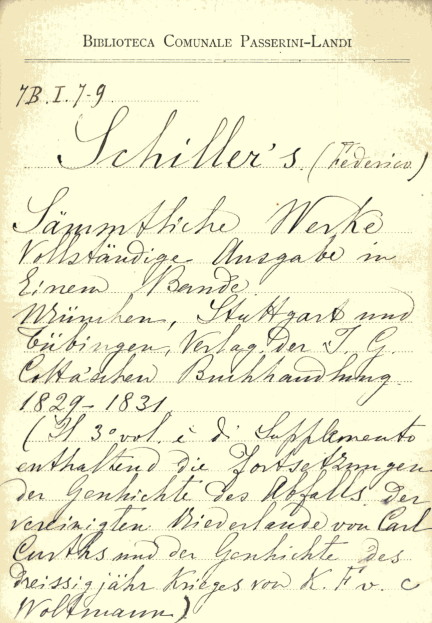 BIBLIOTECA COMUNALE PASSERINI-LANDI
7B.I.7-9
Schiller's (Federico)
Sämmtliche Werke
Vollständige Ausgabe in
Einem Bande
München, Stuttgart und
Tübingen, Verlag der J. G.
Cotta'schen Buchhandlung.
1829-1831
(Il 3° vol. è di Supplemento
enthaltend die Fortsetzungen
der Geschichte des Abfalls der
vereinigten Niederlande von Carl
Curths und der Geschichte des
dreissigjähr Krieges von K. F v. C
Woltmann)